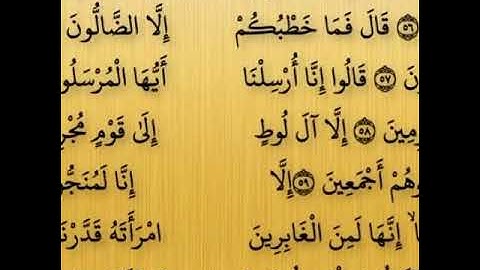 ﴿٥٦﴾ قَالَ فَمَا خَطْبُكُمْ إِلَّا الضَّالُّونَ
نَ ﴿٥٧﴾ قَالُوا إِنَّا أُرْسِلْنَا أَيُّهَا الْمُرْسَلُو
مِينَ ﴿٥٨﴾ إِلَّا آلَ لُوطٍ إِلَىٰ قَوْمٍ مُجْرِ
وهُمْ أَجْمَعِينَ ﴿٥٩﴾ إِلَّا إِنَّا لَمُنَجُّو
إِنَّهَا لَمِنَ الْغَابِرِينَ امْرَأَتَهُ قَدَّرْنَ